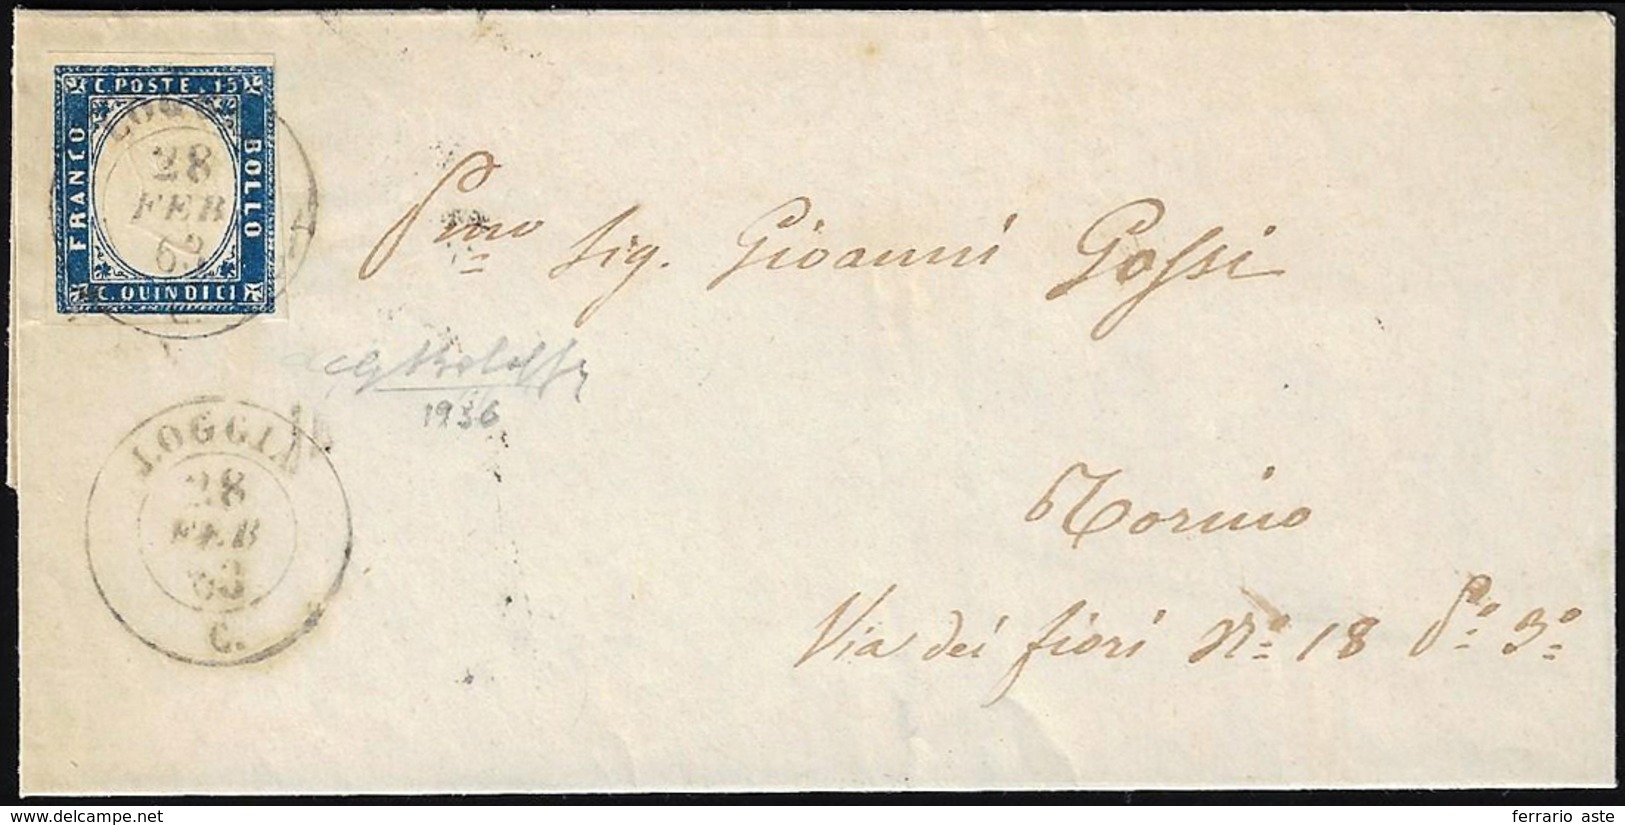 C. POSTE. 15
FRANCO
BOLLO
C. QUINDICI
28
FEB
63
C.
Pmo Sig. Gioanni Gossi
1936
LOGGIA
28
FEB
63
C.
Torino
Via dei fiori No. 18 Po. 3o.
www.delcampe.net
ferrario aste